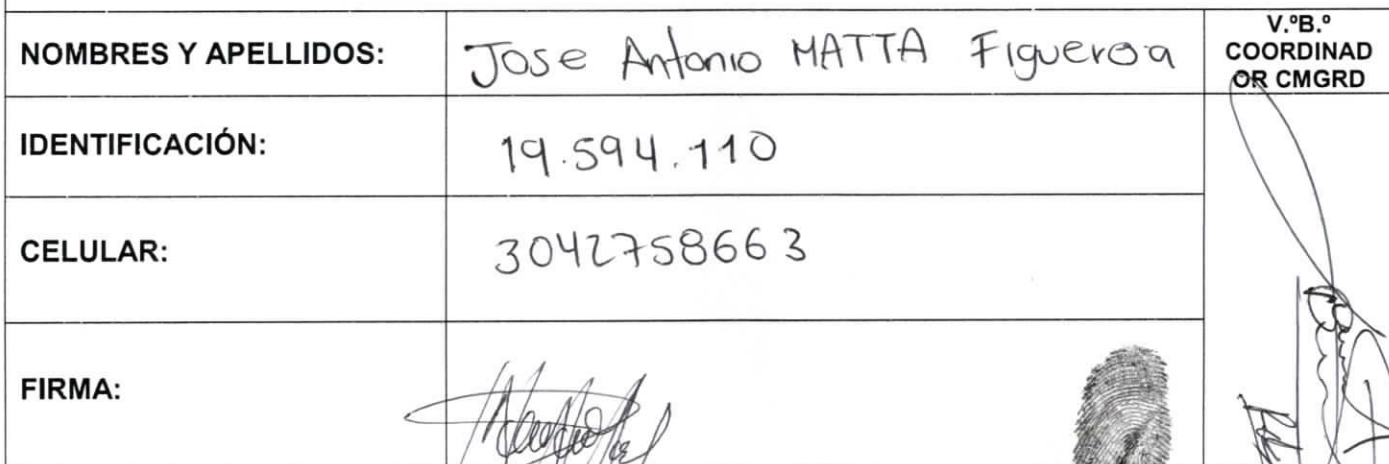 NOMBRES Y APELLIDOS: Jose Antonio MATTA Figueroa
V.ºB.º
COORDINAD
OR CMGRD
IDENTIFICACIÓN: 19.594.110
CELULAR: 3042758663
FIRMA: